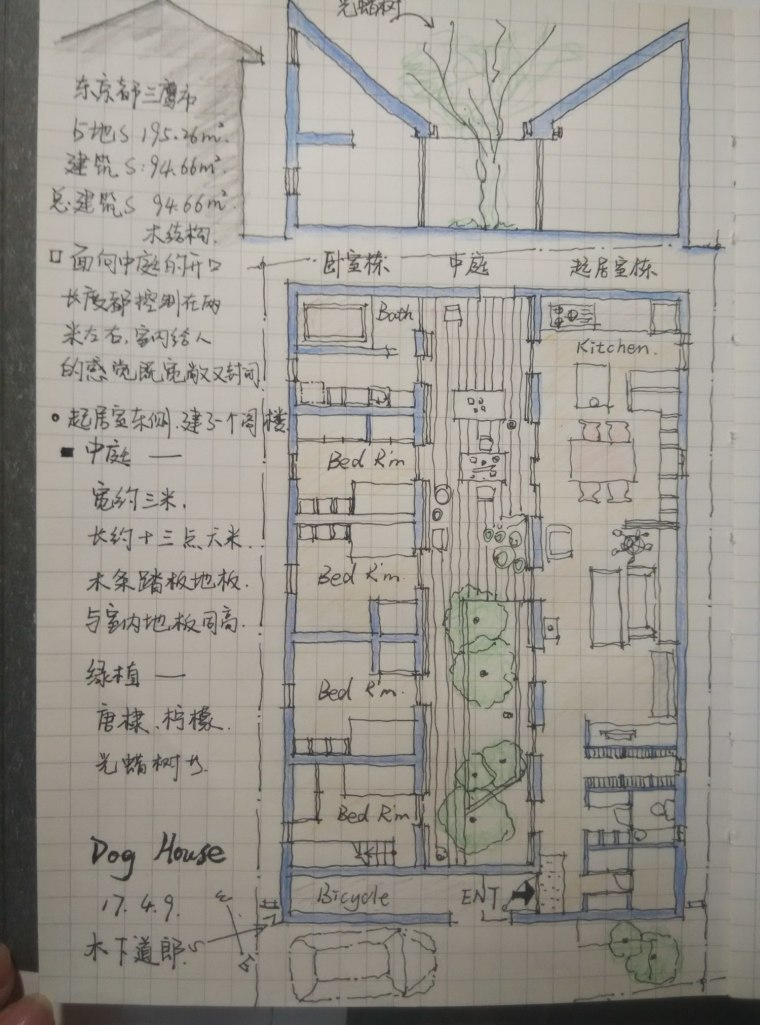 光蜡树
东京都三鹰市
占地S 195.26m²
建筑S:94.66m²
总建筑S 94.66m²
木结构.
□ 面向中庭的开口
长度都控制在两
米左右,室内给人
的感觉既宽敞又封闭.
• 起居室东侧.建了一个阁楼
■ 中庭 —
宽约三米.
长约十三点六米.
木条踏板地板.
与室内地板同高.
绿植 —
唐棣、柠檬.
光蜡树
Dog House
17.4.9.
木下道郎
卧室栋 中庭 起居室栋
Bath
Kitchen.
Bed R'm
Bed R'm.
Bed R'm.
Bed R'm
Bicycle
ENT.